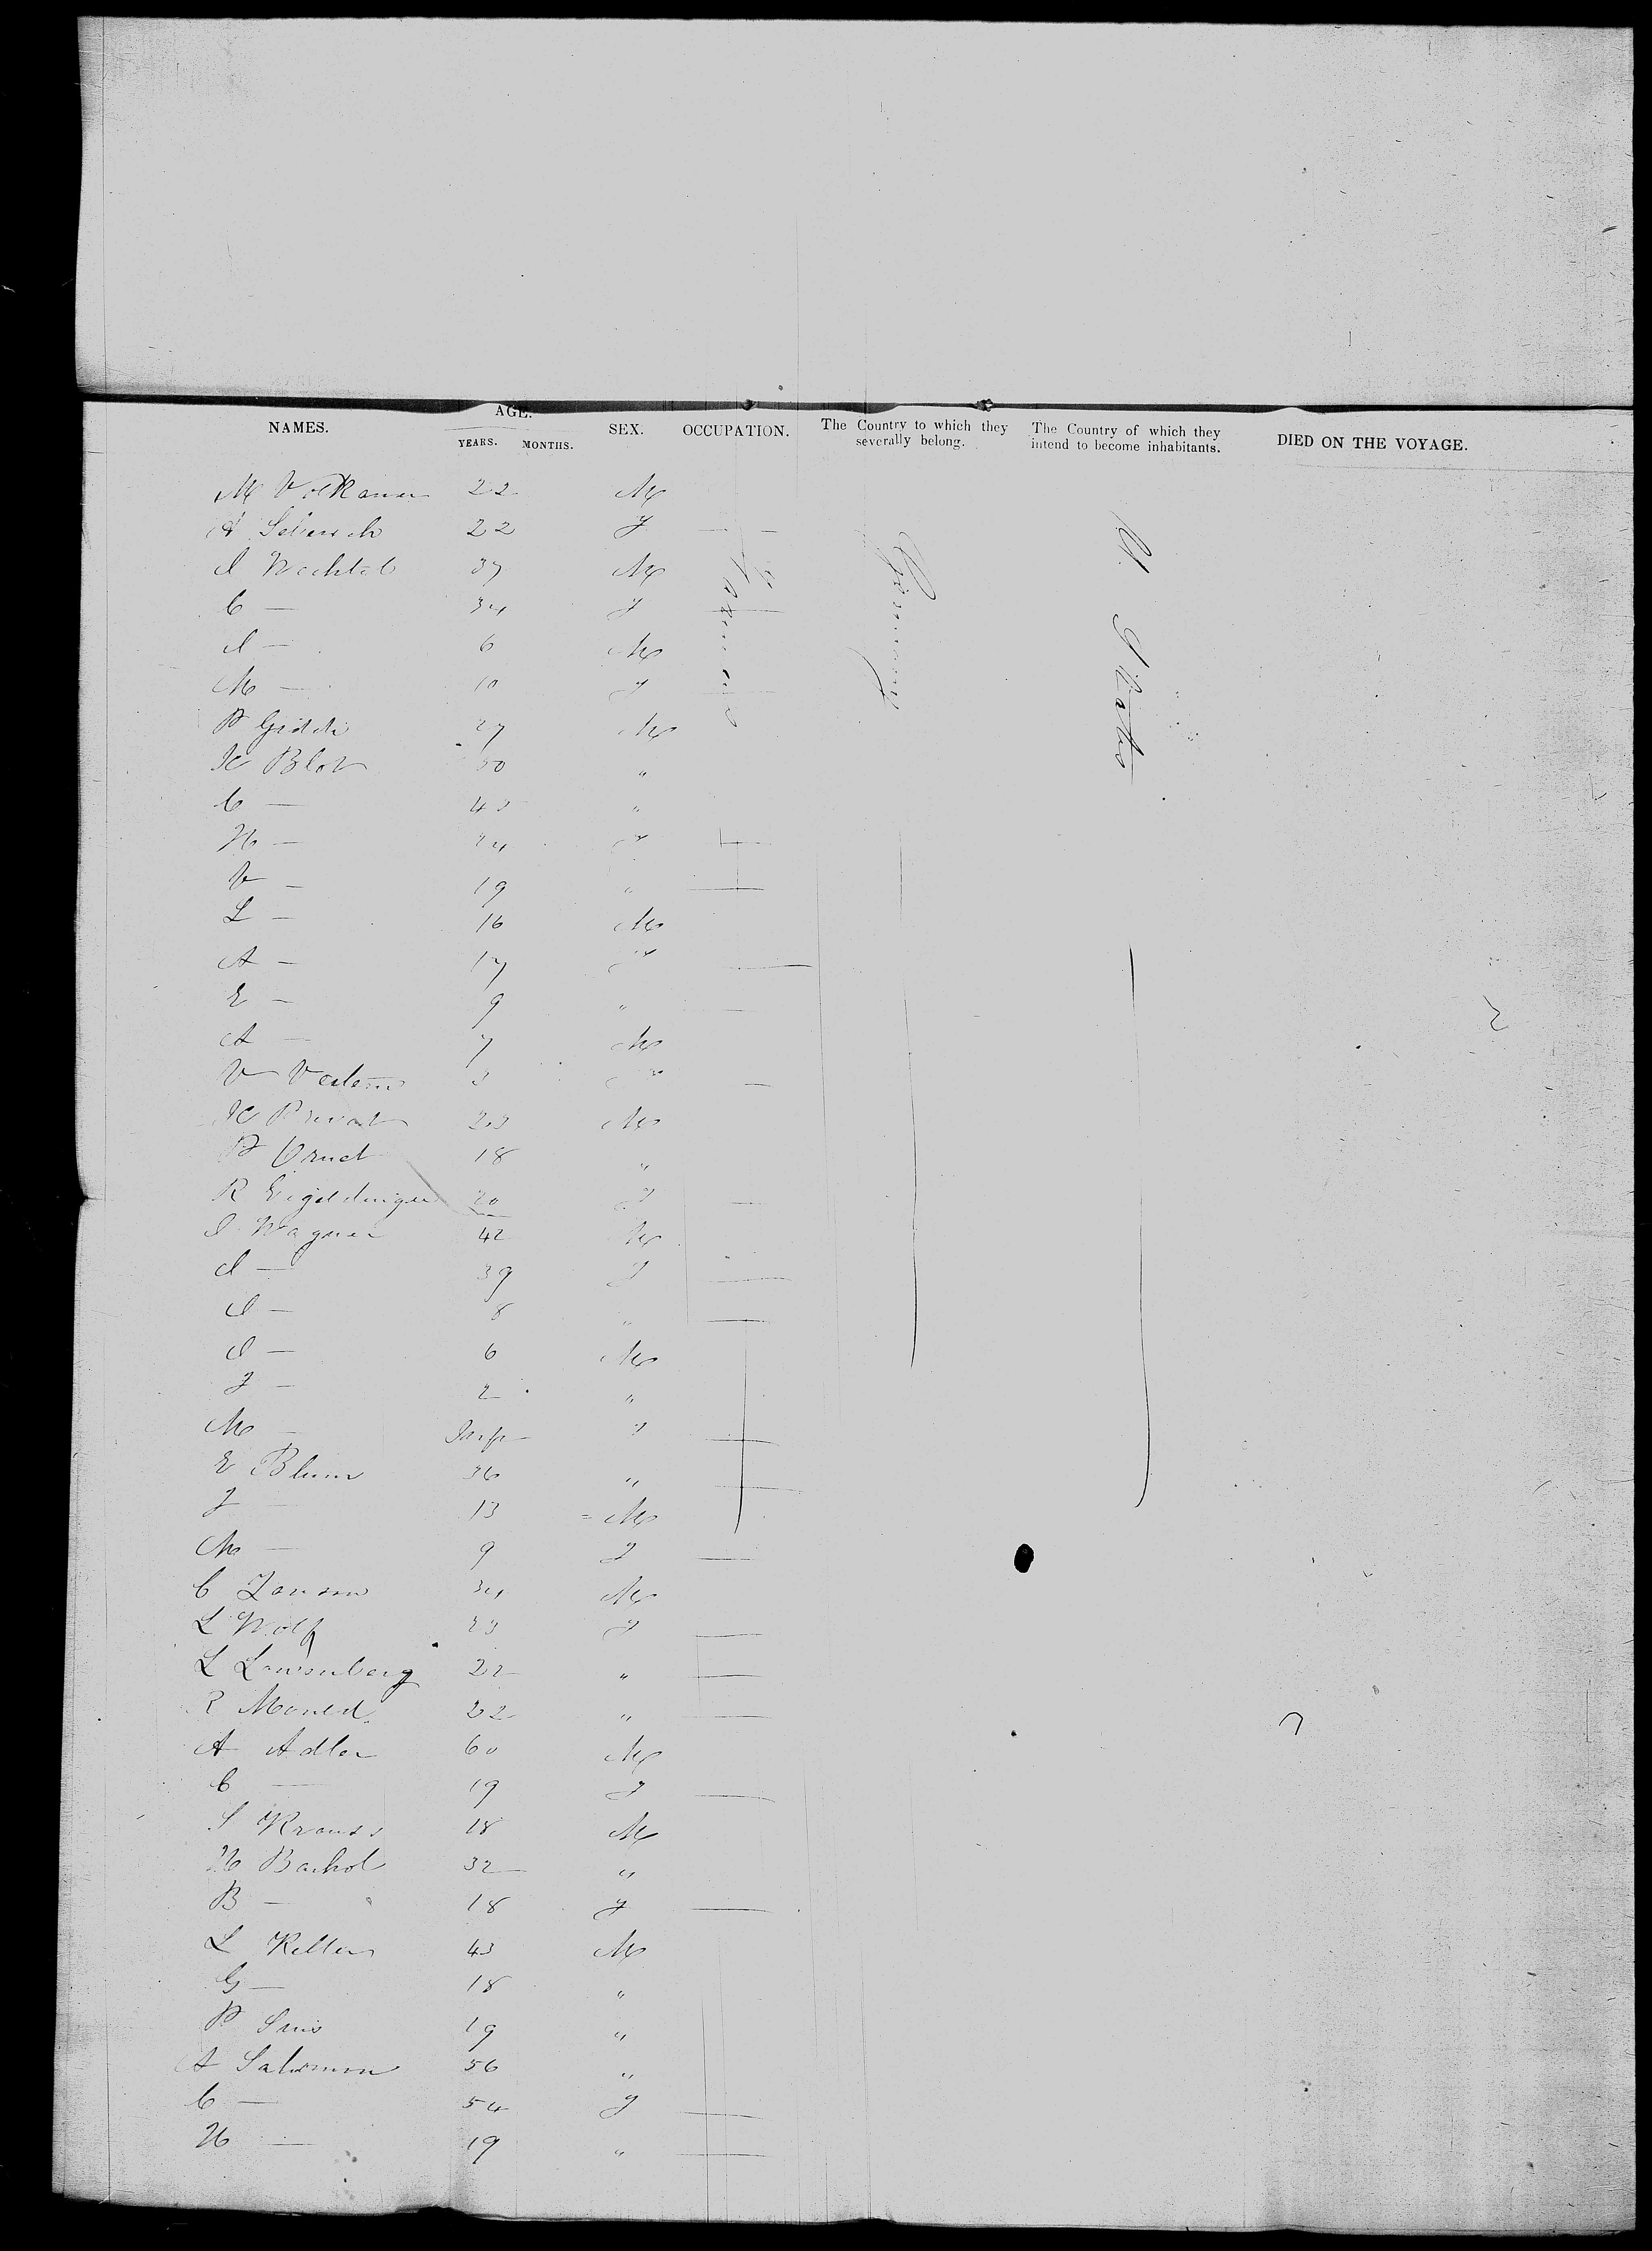 NAMES. AGE. YEARS. MONTHS. SEX. OCCUPATION. The Country to which they severally belong. The Country of which they intend to become inhabitants. DIED ON THE VOYAGE.
M 22 M
A 22 F
I Wachtel 37 M Farmers Germany U. States
C — 34 F
I — 6 M
M — 10 F
P 27 M
K Blot 50 "
C — 43 "
H — 24 F
V — 19 "
L — 16 M
A — 17 F
E — 9 "
A — 7 M
V 3 F
K Privat 23 M
P 18 "
R 20 F
I Wagner 42 M
I — 39 F
I — 8 "
I — 6 M
J — 2 "
M — Inf F
E Blum 36 "
J — 13 M
M — 9 F
C 34 M
L Wolf 23 F
L Lowenberg 22 "
R 22 "
A Adler 60 M
C — 19 F
S Krauss 18 M
H Bachol 32 "
B — 18 F
L Keller 43 M
G — 18 "
P 19 "
A Salomon 56 "
C — 54 F
H — 19 "